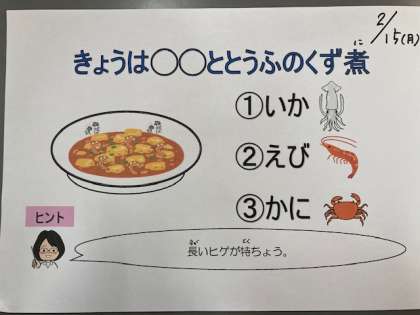 2/15(月)
きょうは○○ととうふのくず煮
に
①いか
②えび
③かに
ヒント
なが とく
長いヒゲが特ちょう。